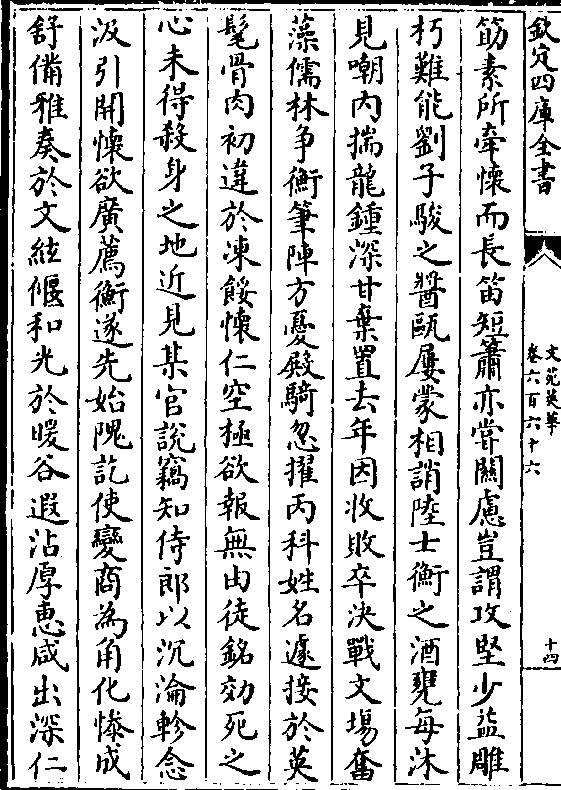 欽定四庫全書
文苑英華
卷六百六十六
十四
筋素所牽懷而長笛短簫亦嘗關慮豈謂攻堅少益雕
朽難能劉子駿之醬瓿屢蒙相誚陸士衡之酒甕每沐
見嘲内揣龍鍾深甘棄置去年因收敗卒決戰文場奮
藻儒林争衡筆陣方憂殿騎忽擢丙科姓名遽接於英
髦骨肉初違於凍餒懷仁空極欲報無由徒銘効死之
心未得殺身之地近見某官說竊知侍郎以沉淪軫念
汲引開懷欲廣薦衡遂先始隗訖使變商為角化慘成
舒備雅奏於文絃偃和光於暖谷遐沾厚惠咸出深仁